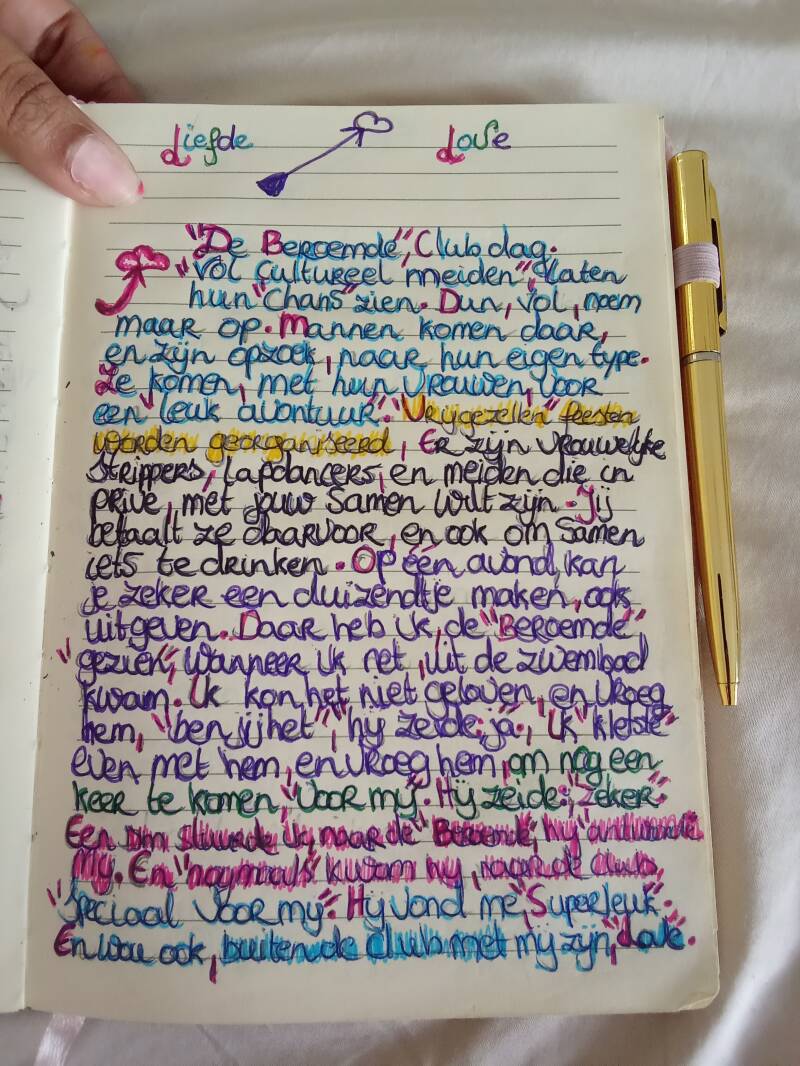 Liefde Love
"De Beroemde", Clubdag.
"Vol Cultureel meiden", laten
hun "Chans" zien. Dun, vol, noem
maar op. Mannen komen daar,
en zijn opzoek, naar hun eigen type.
Ze komen, met hun vrouwen, voor
een "leuk avontuur". "Vrijgezellen" feesten
worden georganiseerd, Er zijn vrouwelijke
strippers, lapdancers, en meiden die in
privé, met jouw samen wilt zijn. Jij
betaalt ze daarvoor, en ook om samen
iets te drinken. Op één avond, kan
je zeker een duizendtje maken, ook
uitgeven. Daar heb ik, de "Beroemde",
"gezien", wanneer ik net, uit de zwembad
kwam. Ik kon het niet geloven, en vroeg
hem, "ben jij het", hij zeide: ja, "Ik" kletste"
even met hem, en vroeg hem, om nog een
keer te komen, "voor mij". Hij zeide:, "zeker".
Een sturde ik, naar de "Beroemde", hij
mij. En "naymaals" kwam hij, naar de club,
"speciaal voor mij". Hij vond me, "Superleuk".
En wou ook, buiten de club met mij zijn, "Love".